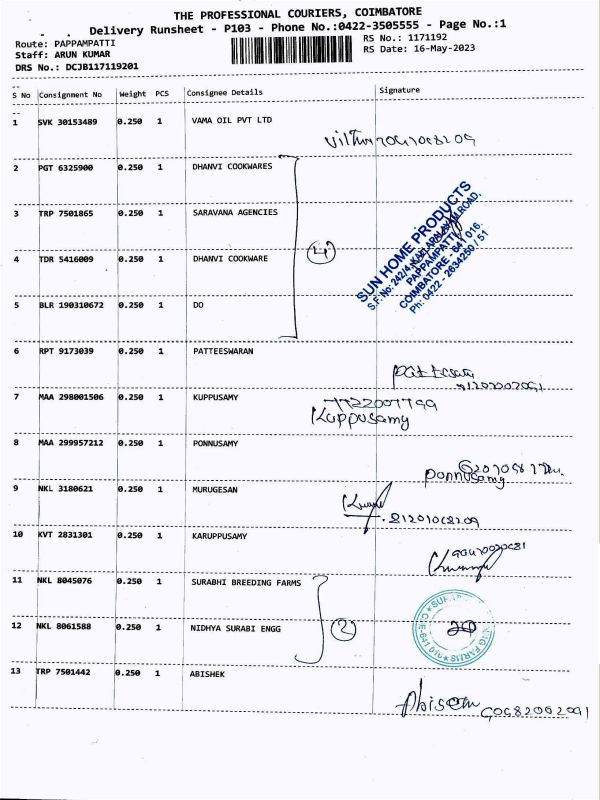 THE PROFESSIONAL COURIERS, COIMBATORE
Delivery Runsheet - P103 - Phone No.:0422-3505555 - Page No.:1
Route: PAPPAMPATTI
RS No.: 1171192
Staff: ARUN KUMAR
RS Date: 16-May-2023
DRS No.: DCJB117119201
S No Consignment No Weight PCS Consignee Details Signature
1 SVK 30153489 0.250 1 VAMA OIL PVT LTD
2 PGT 6325900 0.250 1 DHANVI COOKWARES
3 TRP 7501865 0.250 1 SARAVANA AGENCIES
4 TDR 5416009 0.250 1 DHANVI COOKWARE
5 BLR 190310672 0.250 1 DO
4
SUN HOME PRODUCTS
PAPPAMPATTI
COIMBATORE - 641 016.
Ph: 0422 - 2634250 / 51
6 RPT 9173039 0.250 1 PATTEESWARAN
7 MAA 298001506 0.250 1 KUPPUSAMY
Kuppusamy
8 MAA 299957212 0.250 1 PONNUSAMY
Ponnusamy
9 NKL 3180621 0.250 1 MURUGESAN
10 KVT 2831301 0.250 1 KARUPPUSAMY
11 NKL 8045076 0.250 1 SURABHI BREEDING FARMS
12 NKL 8061588 0.250 1 NIDHYA SURABI ENGG
2
13 TRP 7501442 0.250 1 ABISHEK